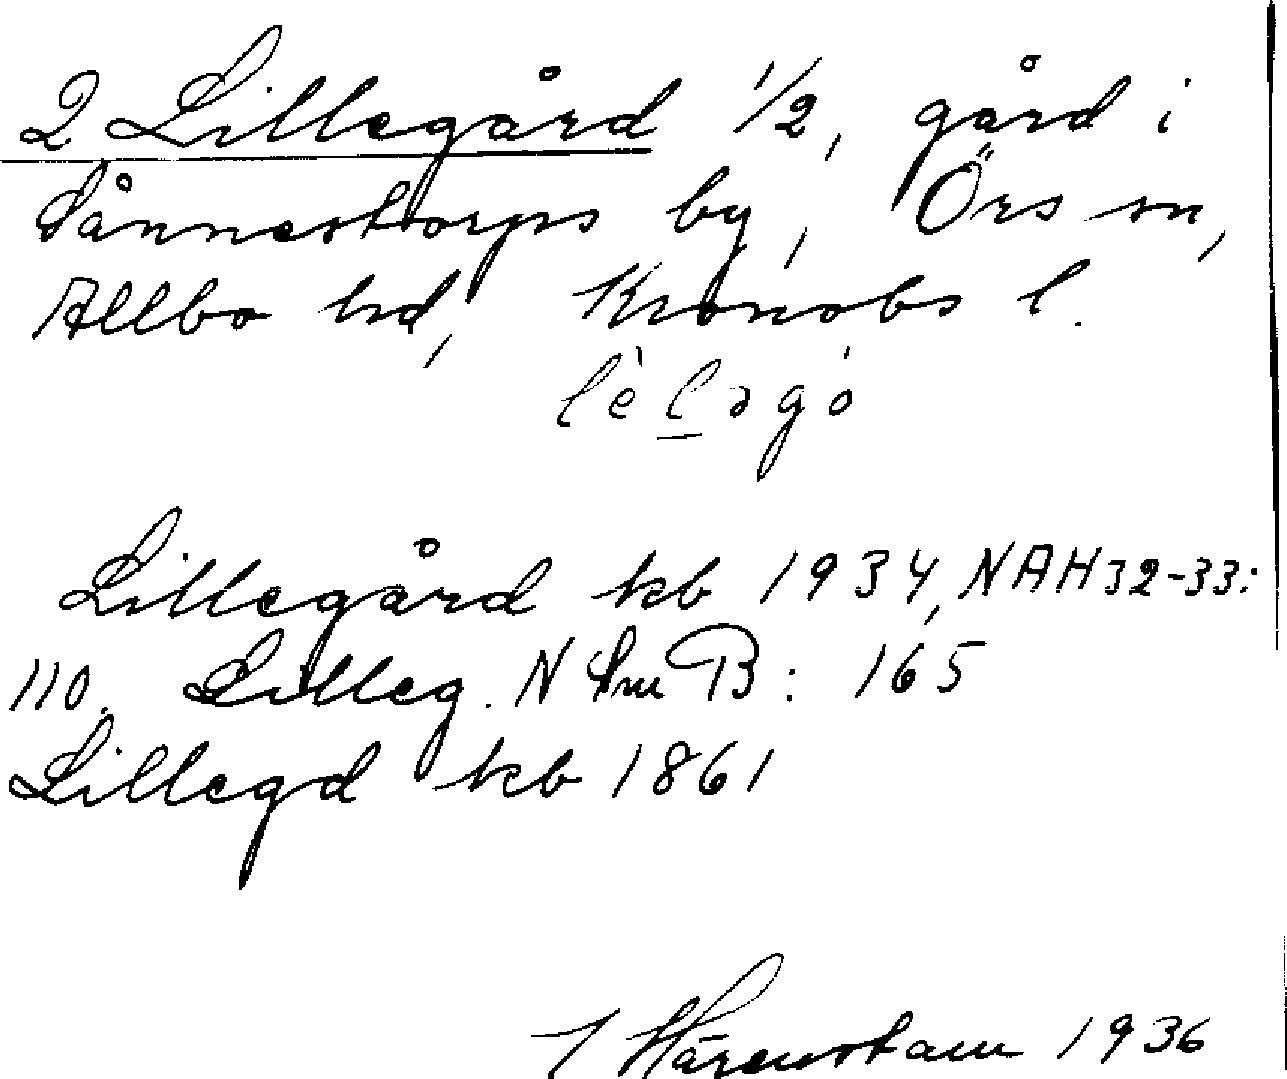 2 Lillegård 1/2, gård i
Sånnestorps by, Örs sn,
Allbo hd, Kronobs l.
lèḻəgó
Lillegård kb 1934, NAH 32-33:
110. Lilleg. N Sm B: 165
Lillegd kb 1861
J Hårenstam 1936